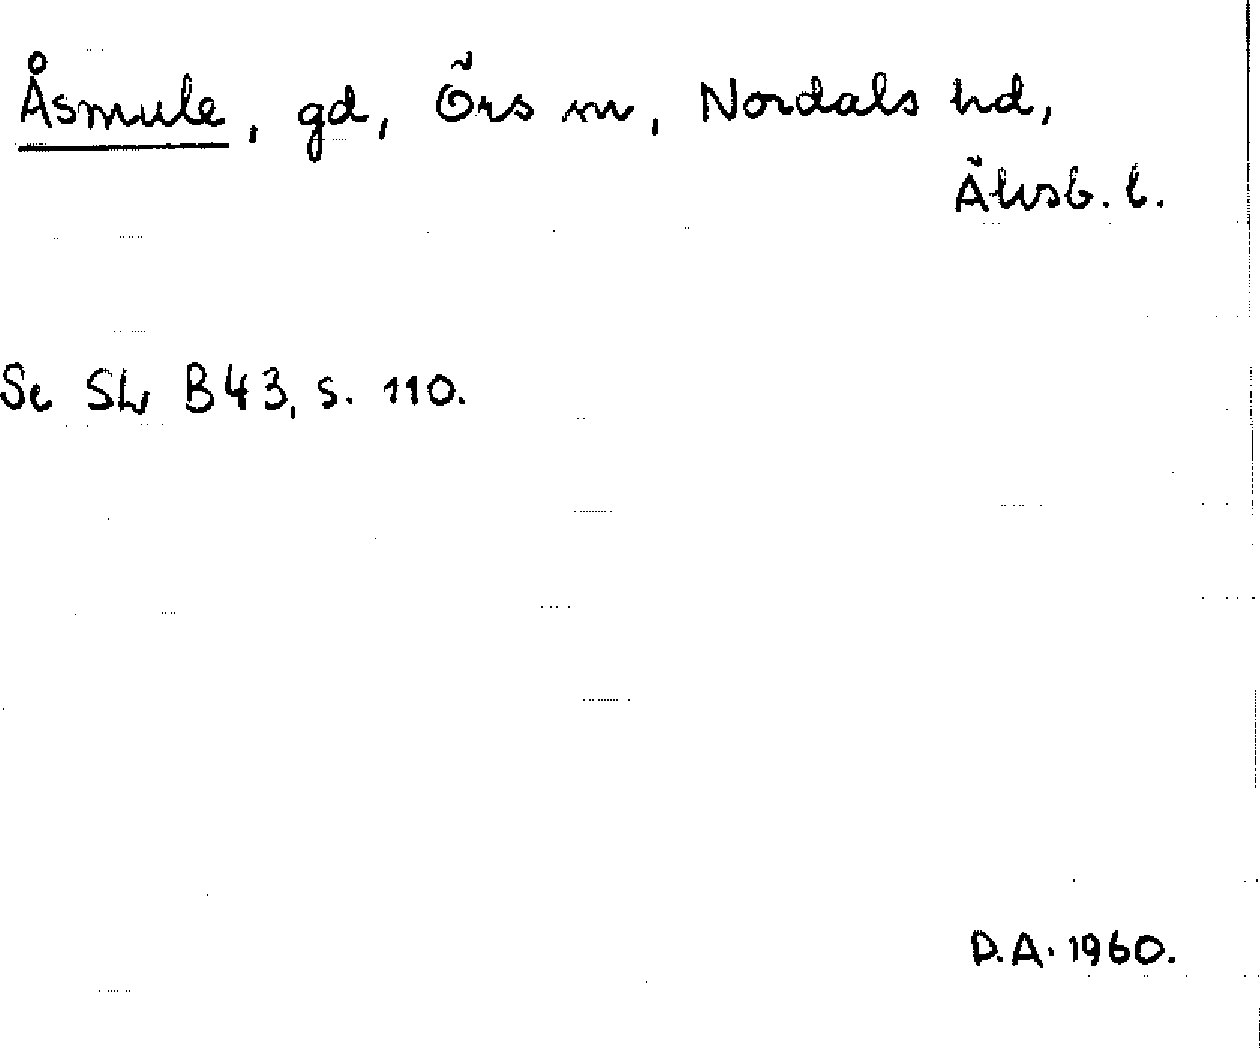 Åsmule, gd, Örs sn, Nordals hd,
Älvsb. l.
Se SLv B43, s. 110.
D.A. 1960.